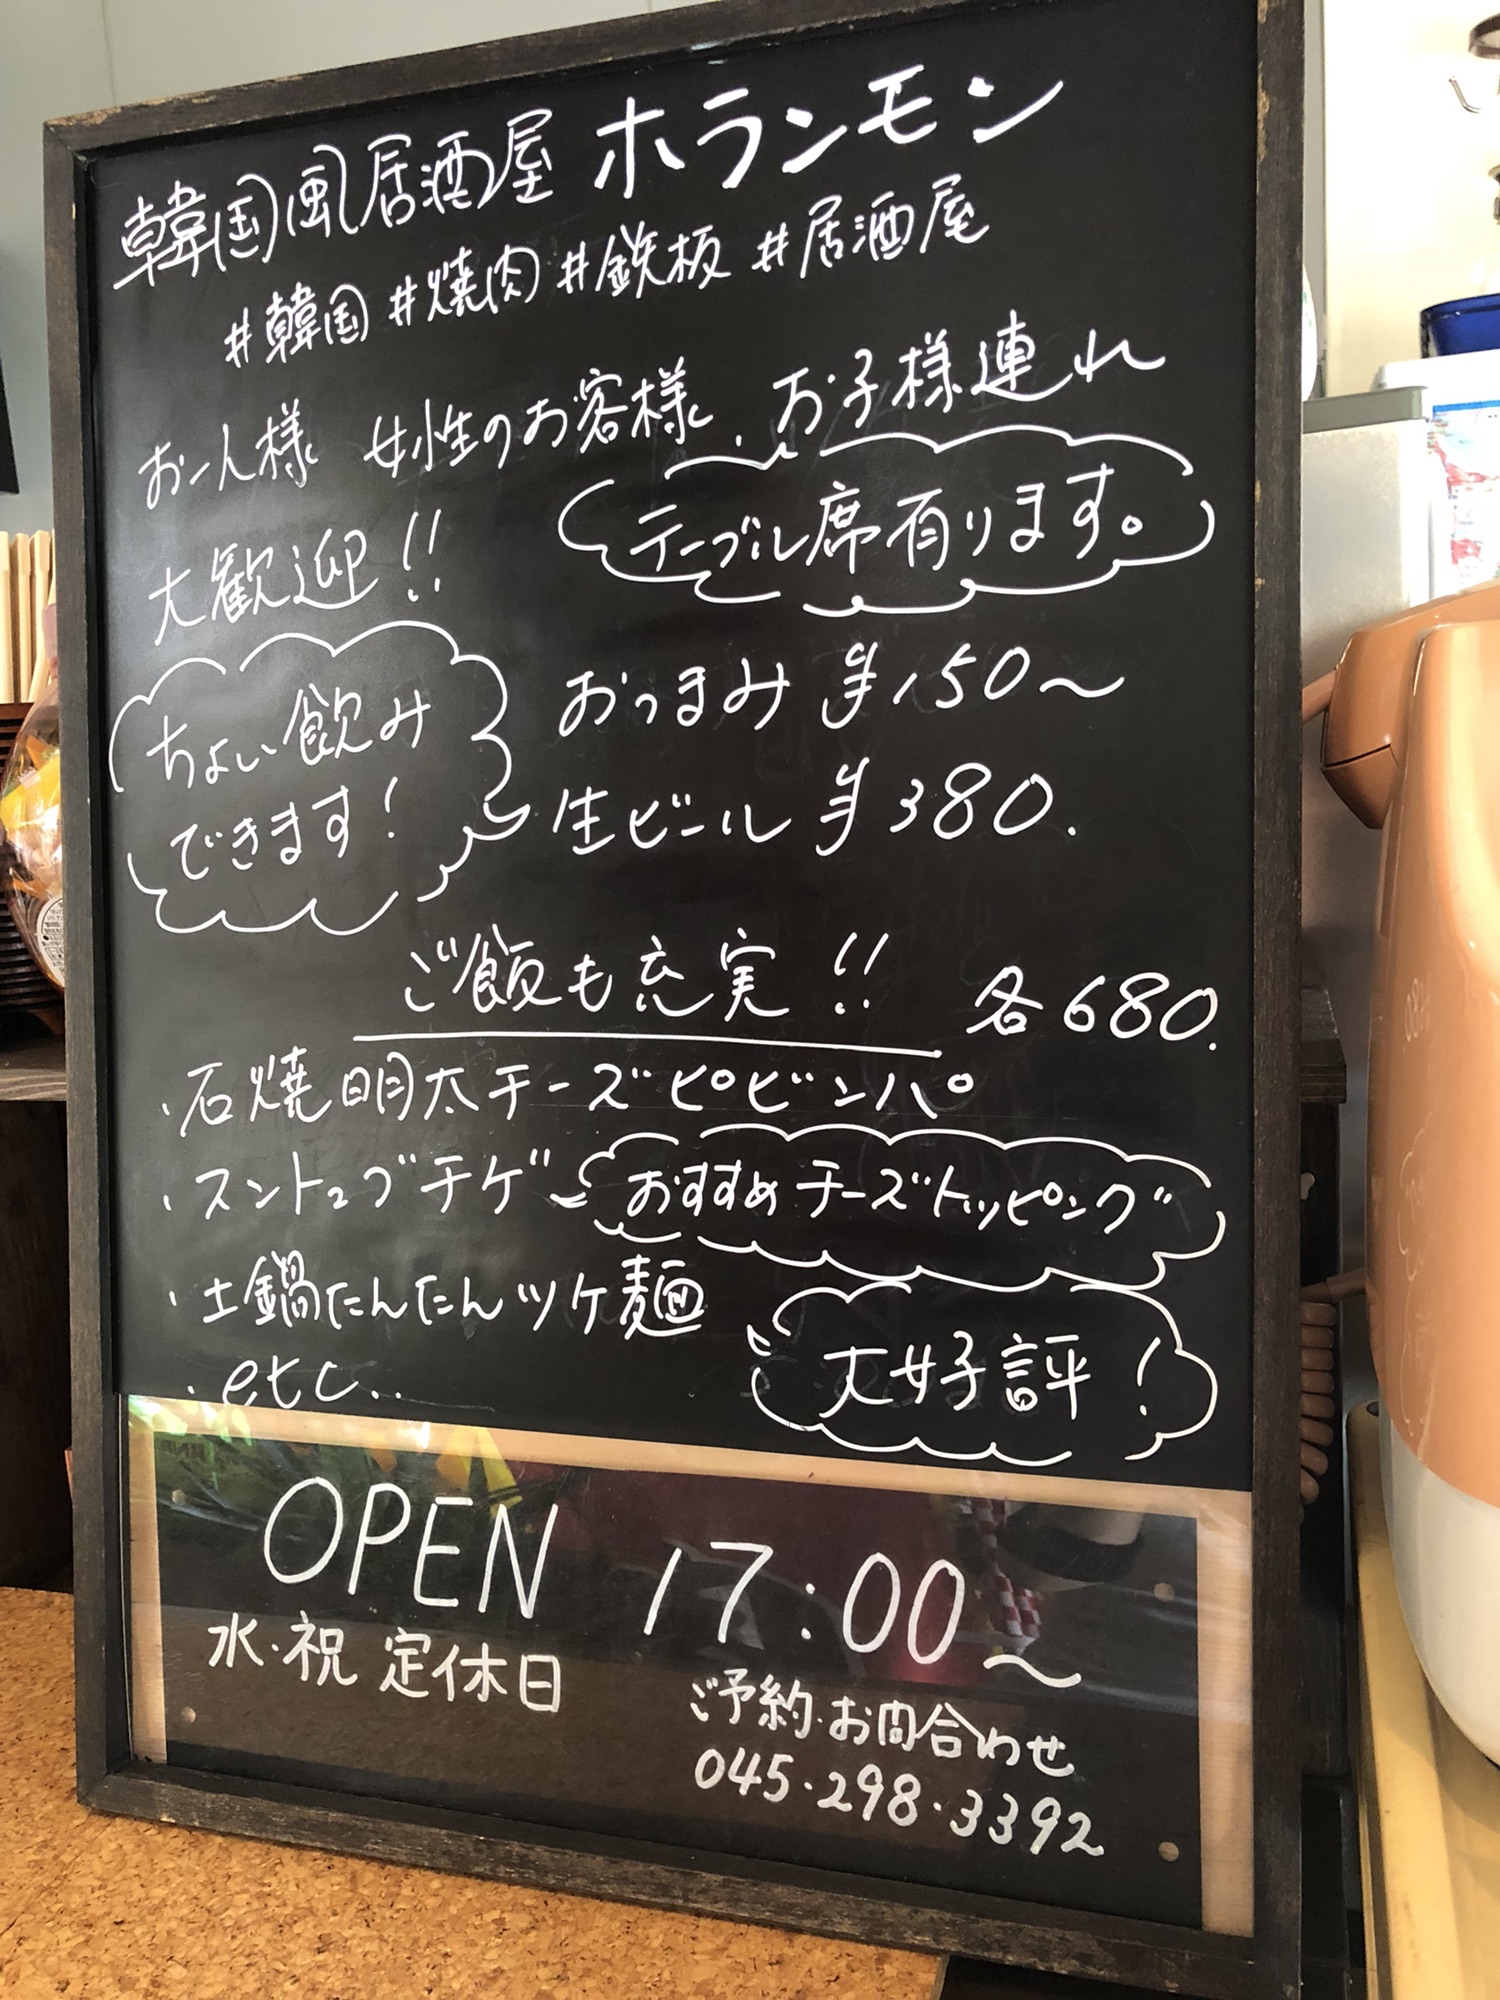 韓国風居酒屋 ホランモン
#韓国 #焼肉 #鉄板 #居酒屋
お一人様 女性のお客様、お子様連れ
大歓迎!!
テーブル席有ります。
ちょい飲み
できます!
おつまみ ¥150〜
生ビール ¥380.
ご飯も充実!! 各680.
・石焼明太チーズピビンパ
・スントゥブチゲ
おすすめチーズトッピング
・土鍋たんたんツケ麺
・etc...
大好評!
OPEN 17:00〜
水・祝 定休日
ご予約・お問合わせ
045・298・3392